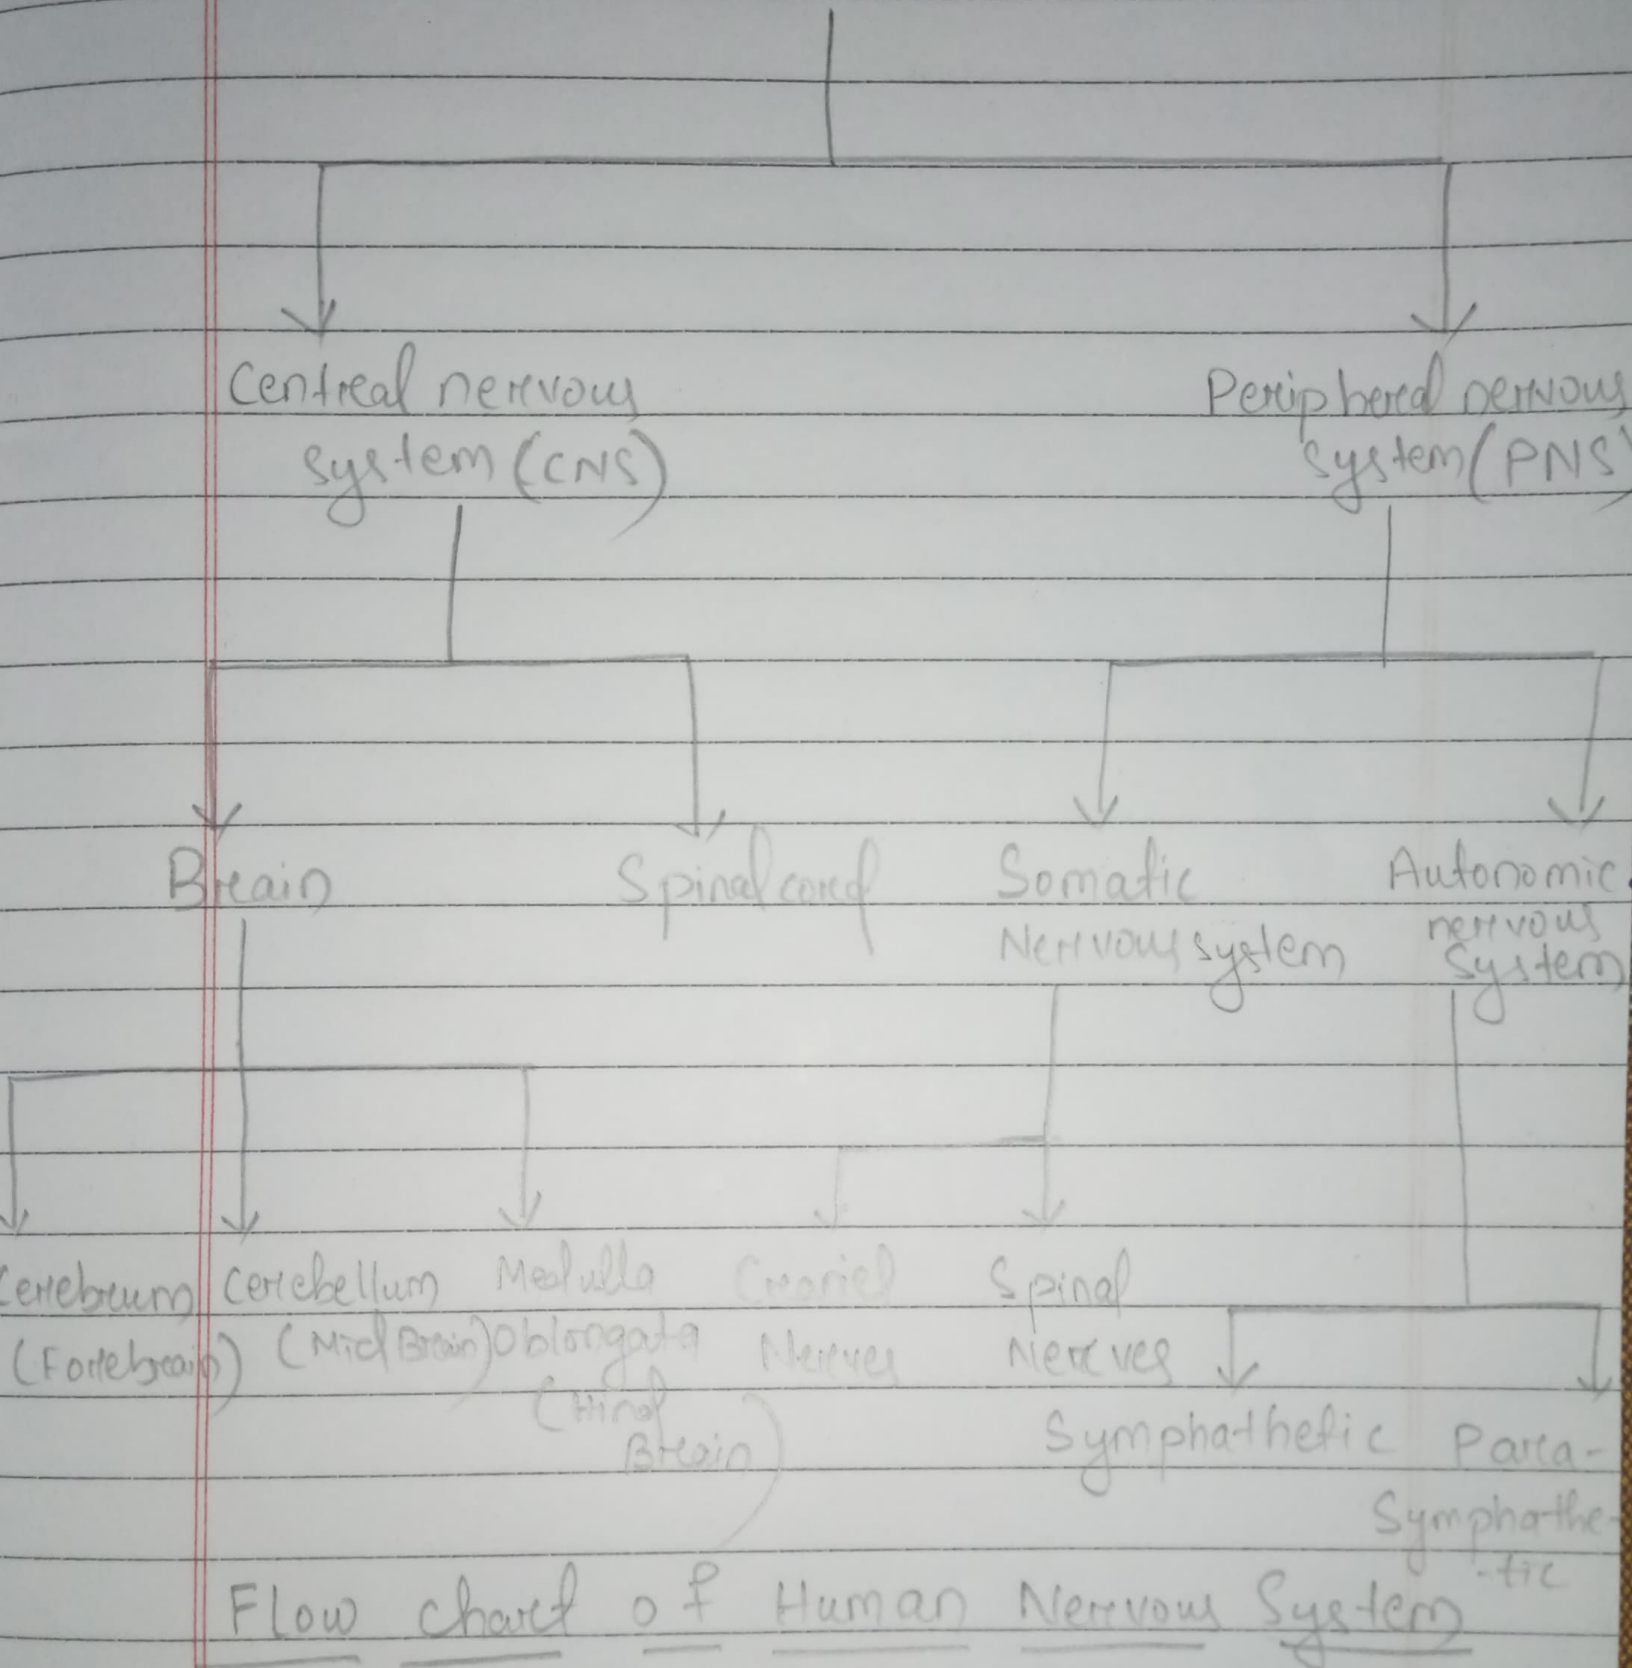 Central nervous
system (CNS)
Peripheral nervous
system (PNS)
Brain
Spinal cord
Somatic
Nervous system
Autonomic
nervous
system
Cerebrum
(Forebrain)
Cerebellum
(Mid Brain)
Medulla
Oblongata
(Hind
Brain)
Cranial
Nerves
Spinal
Nerves
Symphathetic
Para-
Symphathe-
-tic
Flow chart of Human Nervous System